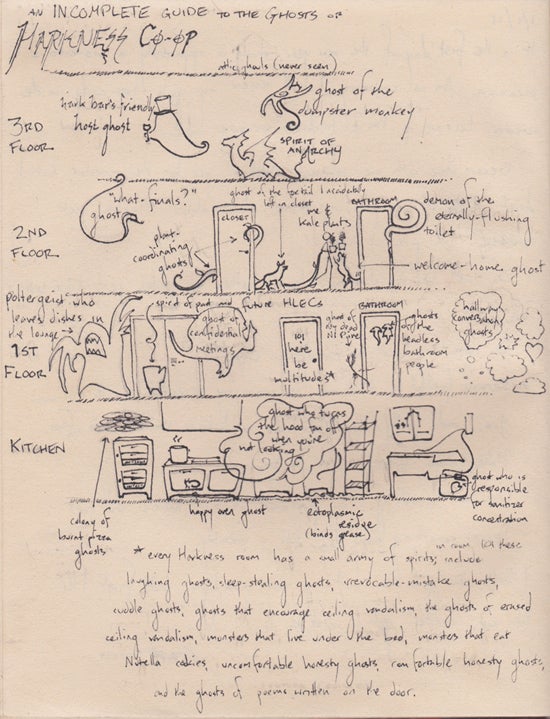 AN INCOMPLETE GUIDE TO THE GHOSTS OF
HARKNESS CO-OP
attic ghouls (never seen)
3RD
FLOOR
hawk bar's friendly
host ghost
ghost of the
dumpster monkey
SPIRIT OF
ANARCHY
2ND
FLOOR
"what-finals?"
ghost
plant-
coordinating
ghosts
CLOSET
ghost of the foxtail I accidentally
left in closet
me &
kale plants
BATHROOM
demon of the
eternally-flushing
toilet
welcome-home ghost
1ST
FLOOR
poltergeist who
leaves dishes in
the lounge
spirit of past and future HLECs
ghost of
confidential
meetings
101
here
be
multitudes*
ghost of
my dead
BATHROOM
ghosts
of the
headless
bathroom
people
hallway
conversation
ghosts
KITCHEN
colony of
burnt pizza
ghosts
happy oven ghost
ghost who turns
the hood fan off
when you're
not looking
ectoplasmic
residue
(binds grease)
ghost who is
responsible
for sanitizer
concentration
* every Harkness room has a small army of spirits; in room 101 these include
laughing ghosts, sleep-stealing ghosts, irrevocable-mistake ghosts,
cuddle ghosts, ghosts that encourage ceiling vandalism, the ghosts of erased
ceiling vandalism, monsters that live under the bed, monsters that eat
Nutella cookies, uncomfortable honesty ghosts, comfortable honesty ghosts,
and the ghosts of poems written on the door.